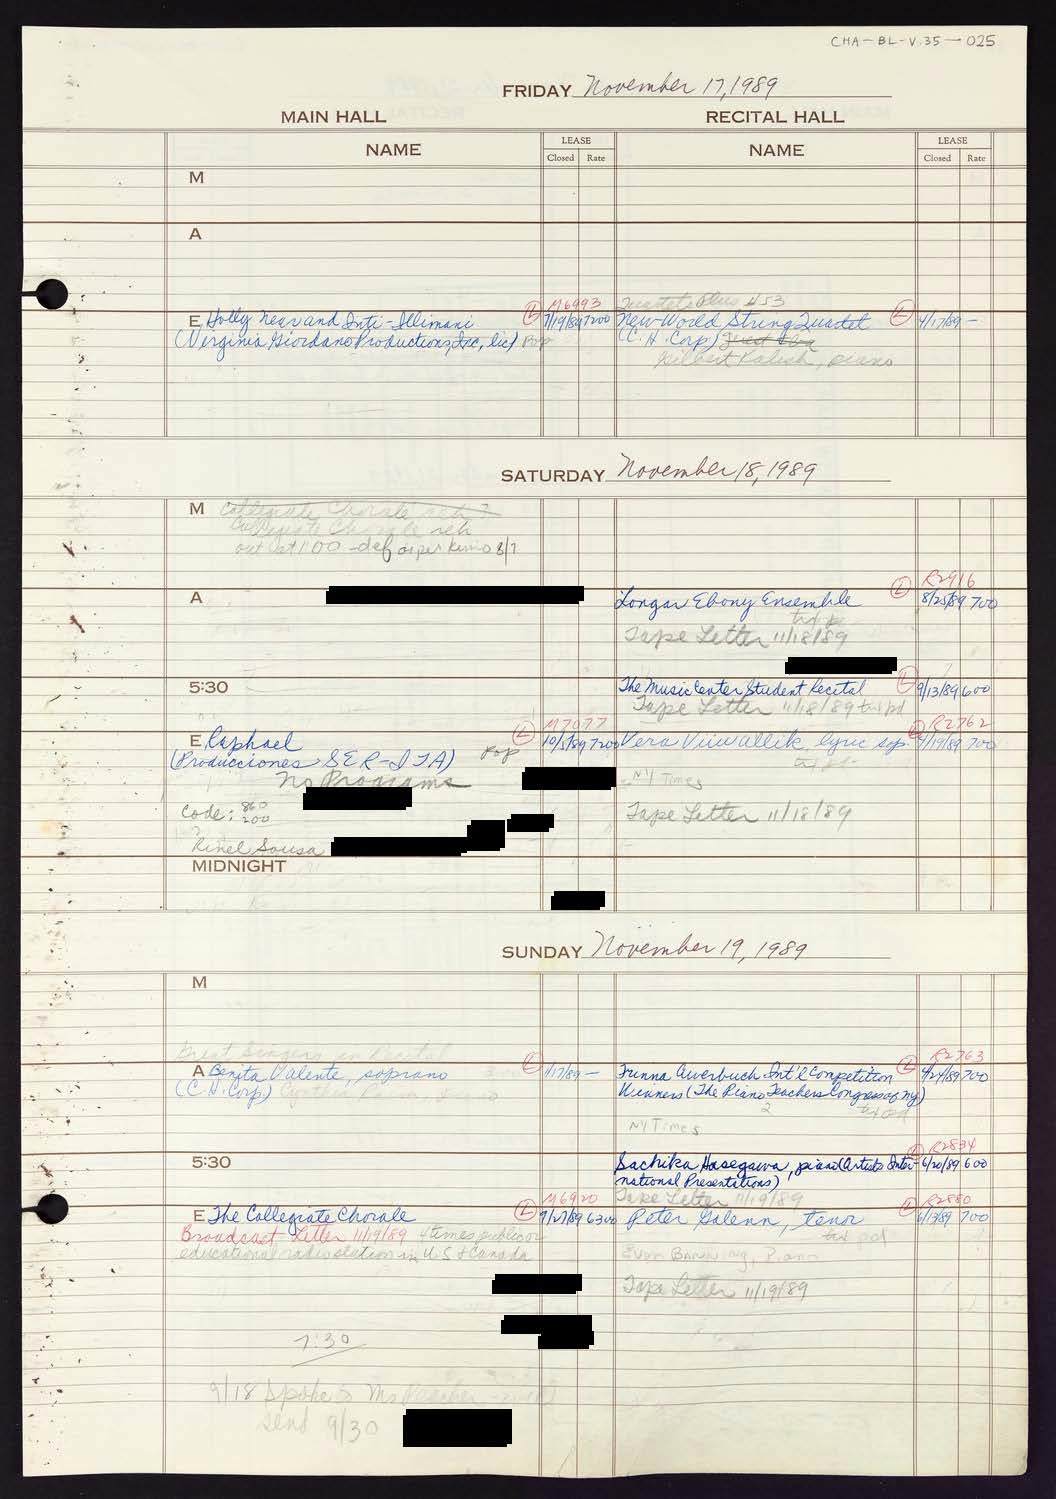 CHA-BL-V.35-025
FRIDAY November 17, 1989
MAIN HALL
RECITAL HALL
NAME
LEASE
Closed Rate
NAME
LEASE
Closed Rate
M
A
M6993
Quartets Plus 453
E Holly Near and Inti-Illimani
L 7/19/89 7200
New World String Quartet
L 4/17/89 -
(Virginia Giordano Productions, Inc, lic)
Pop
(C.H. Corp)
Gilbert Kalish, piano
SATURDAY November 18, 1989
M Collegiate Chorale reh ?
Collegiate Chorale reh
out at 1:00 - def as per 8/7
R2916
A
Longar Ebony Ensemble
L 8/25/89 700
Tape Letter 11/18/89
5:30
The Music Center Student Recital
L 9/13/89 600
Tape Letter 11/18/89
M7077
R2762
E Raphael
L 10/5/89 7200
lyric sop.
L 700
(Producciones SER-ITA)
Pop
No Programs
NY Times
Code: 860
200
Tape Letter 11/18/89
Rinel Sousa
MIDNIGHT
SUNDAY November 19, 1989
M
Great Singers in Recital
R2763
A Benita Valente, soprano
L 1/17/89 -
Auerbuch Int'l Competition
L 4/21/89 700
(C.H. Corp.)
Winners (The Piano Teachers Congress of NY)
NY Times
R2834
5:30
Sachika Hasegawa, piano (Artists Inter-
L 6/20/89 600
national Presentations)
Tape Letter 11/19/89
M6920
R2880
E The Collegiate Chorale
L 9/27/89 6300
Peter Galenn, tenor
L 6/13/89 700
Broadcast Letter 11/19/89 4 times public or
educational radio station in U.S & Canada
Banning, Piano
Tape Letter 11/19/89
7:30
9/18 Spoke to Ms
send 9/30